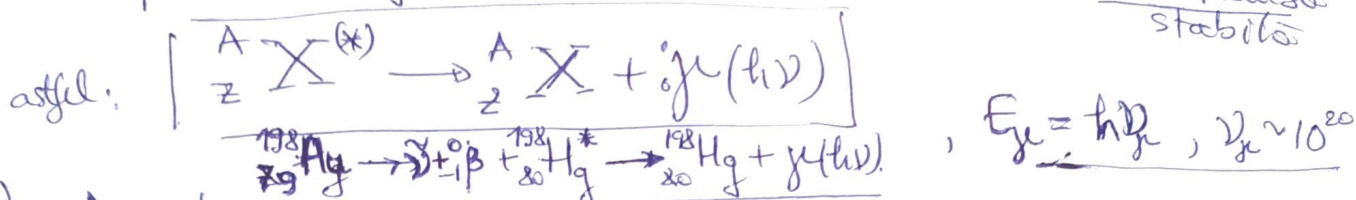 stabilă
astfel: ᴬ_Z X^(*) → ᴬ_Z X + ⁰₀γ(hν)
¹⁹⁸₇₉Ay → ν̃ + ⁰₋₁β + ¹⁹⁸₈₀Hg* → ¹⁹⁸₈₀Hg + γ(hν). , E_γ = hν_γ , ν_γ ~ 10²⁰